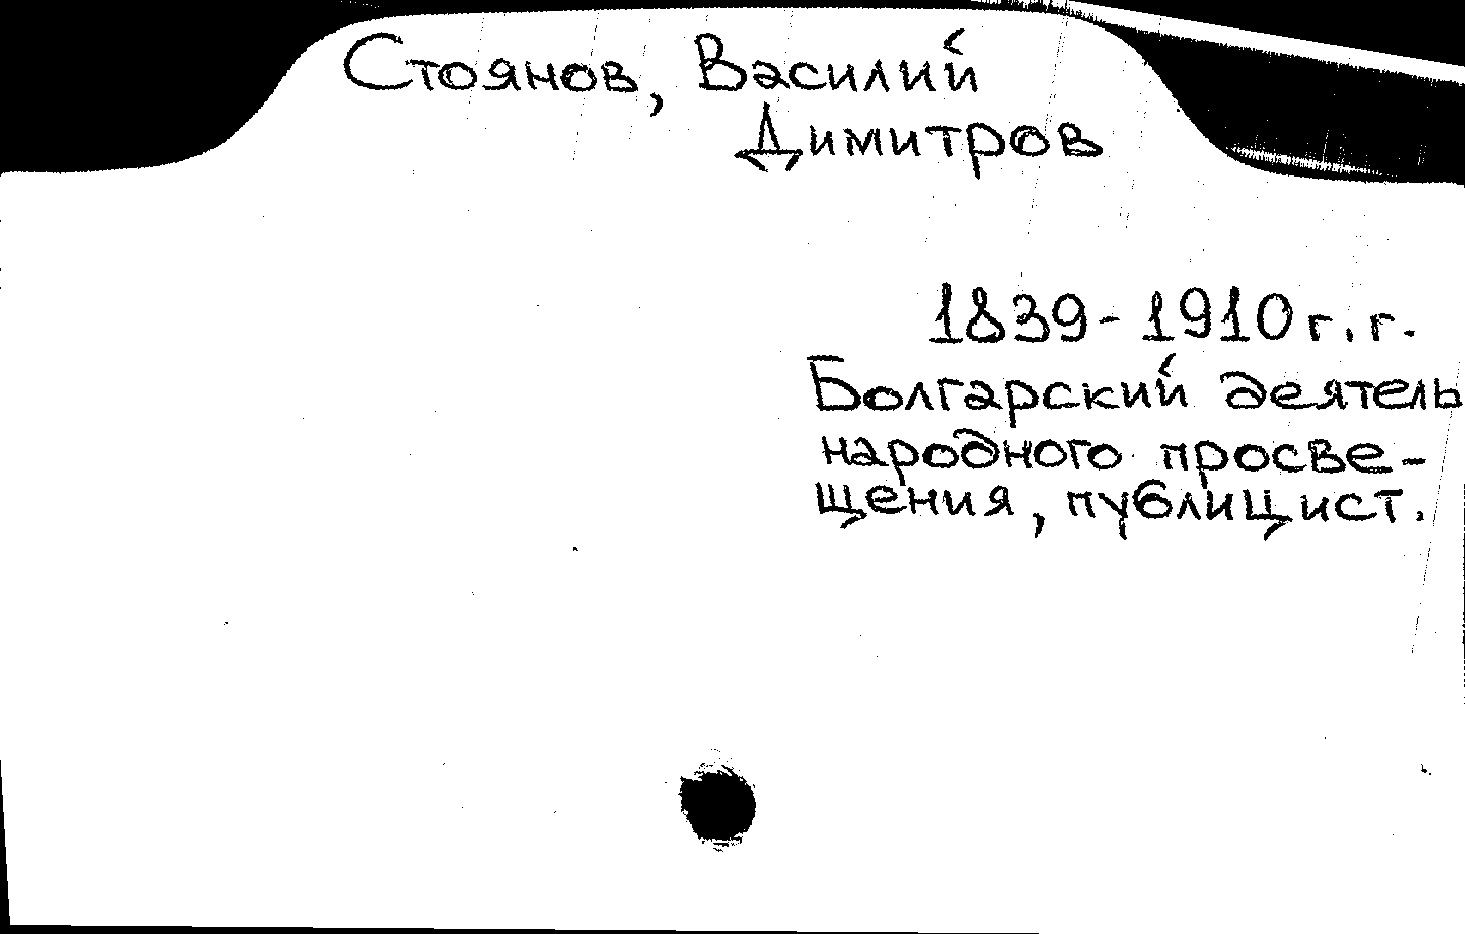 Стоянов, Василий
Димитров
1839-1910 г.г.
Болгарский деятель
народного просве-
щения, публицист.